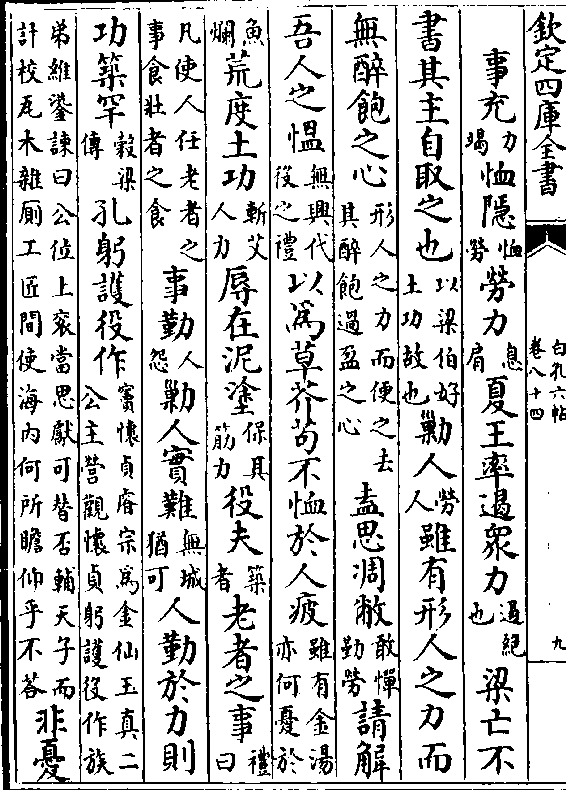 欽定四庫全書
白孔六帖
卷八十四
九
事充力竭恤隱恤勞勞力息肩夏王率遏衆力遏絶也梁亡不
書其主自取之也以梁伯好土功故也勦人勞人雖有形人之力而
無醉飽之心形人之力而使之去其醉飽過盈之心盍思凋敝敢憚勤勞請解
吾人之慍無興代役之禮以為草芥苟不恤於人疲雖有金湯亦何憂於
魚爛荒度土功斬艾人力辱在泥塗保其筋力役夫築者老者之事禮曰
凡使人任老者之事食壯者之食事勤人怨勦人實難無城猶可人勤於力則
功築罕穀梁傳孔躬護役作竇懷貞睿宗為金仙玉真二公主營觀懷貞躬護役作族
弟維鍌諫曰公位上衮當思獻可替否輔天子而計校瓦木雜厠工匠間使海内何所瞻仰乎不答非憂